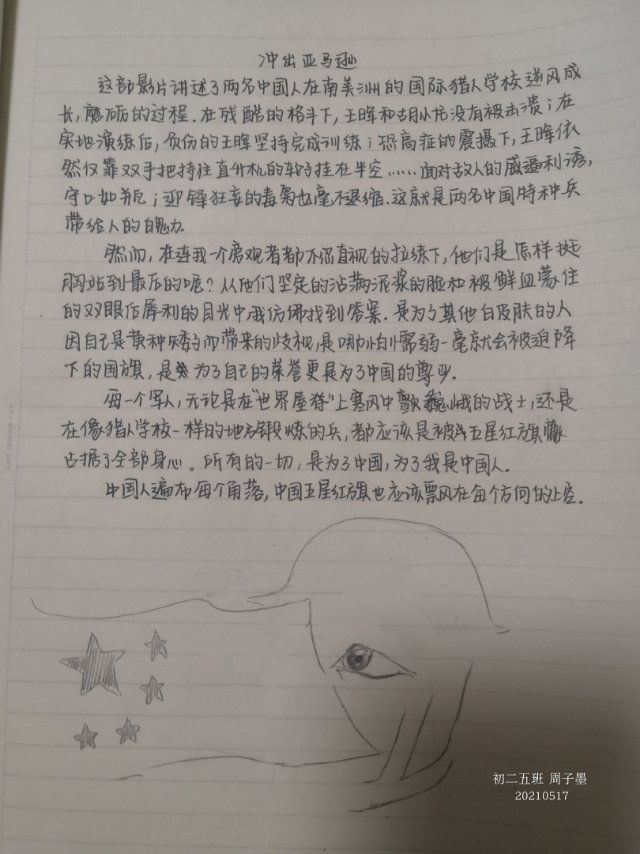 冲出亚马逊
这部影片讲述了两名中国人在南美洲的国际猎人学校逆风成
长,磨砺的过程.在残酷的格斗下,王晖和胡小龙没有被击溃;在
实地演练后,负伤的王晖坚持完成训练;恐高症的震摄下,王晖依
然仅靠双手把持住直升机的软梯挂在半空……面对敌人的威逼利诱,
守口如瓶;迎锋狂妄的毒枭也毫不退缩.这就是两名中国特种兵
带给人的魄力.
然而,在连我一个旁观者都不愿直视的拉练下,他们是怎样挺
胸站到最后的呢?从他们坚定的沾满泥浆的脸和被鲜血蒙住
的双眼后犀利的目光中,我仿佛找到答案.是为了其他白皮肤的人
因自己是黄种而带来的歧视,是哪怕懦弱一毫就会被迫降
下的国旗,是为了自己的荣誉更是为了中国的尊严.
每一个军人,无论是在"世界屋脊"上寒风中巍峨的战士,还是
在像猎人学校一样的地方锻炼的兵,都应该是被五星红旗
占据了全部身心。所有的一切,是为了中国,为了我是中国人.
中国人遍布每个角落,中国五星红旗也应该飘在每个方向的上空.
初二五班 周子墨
20210517